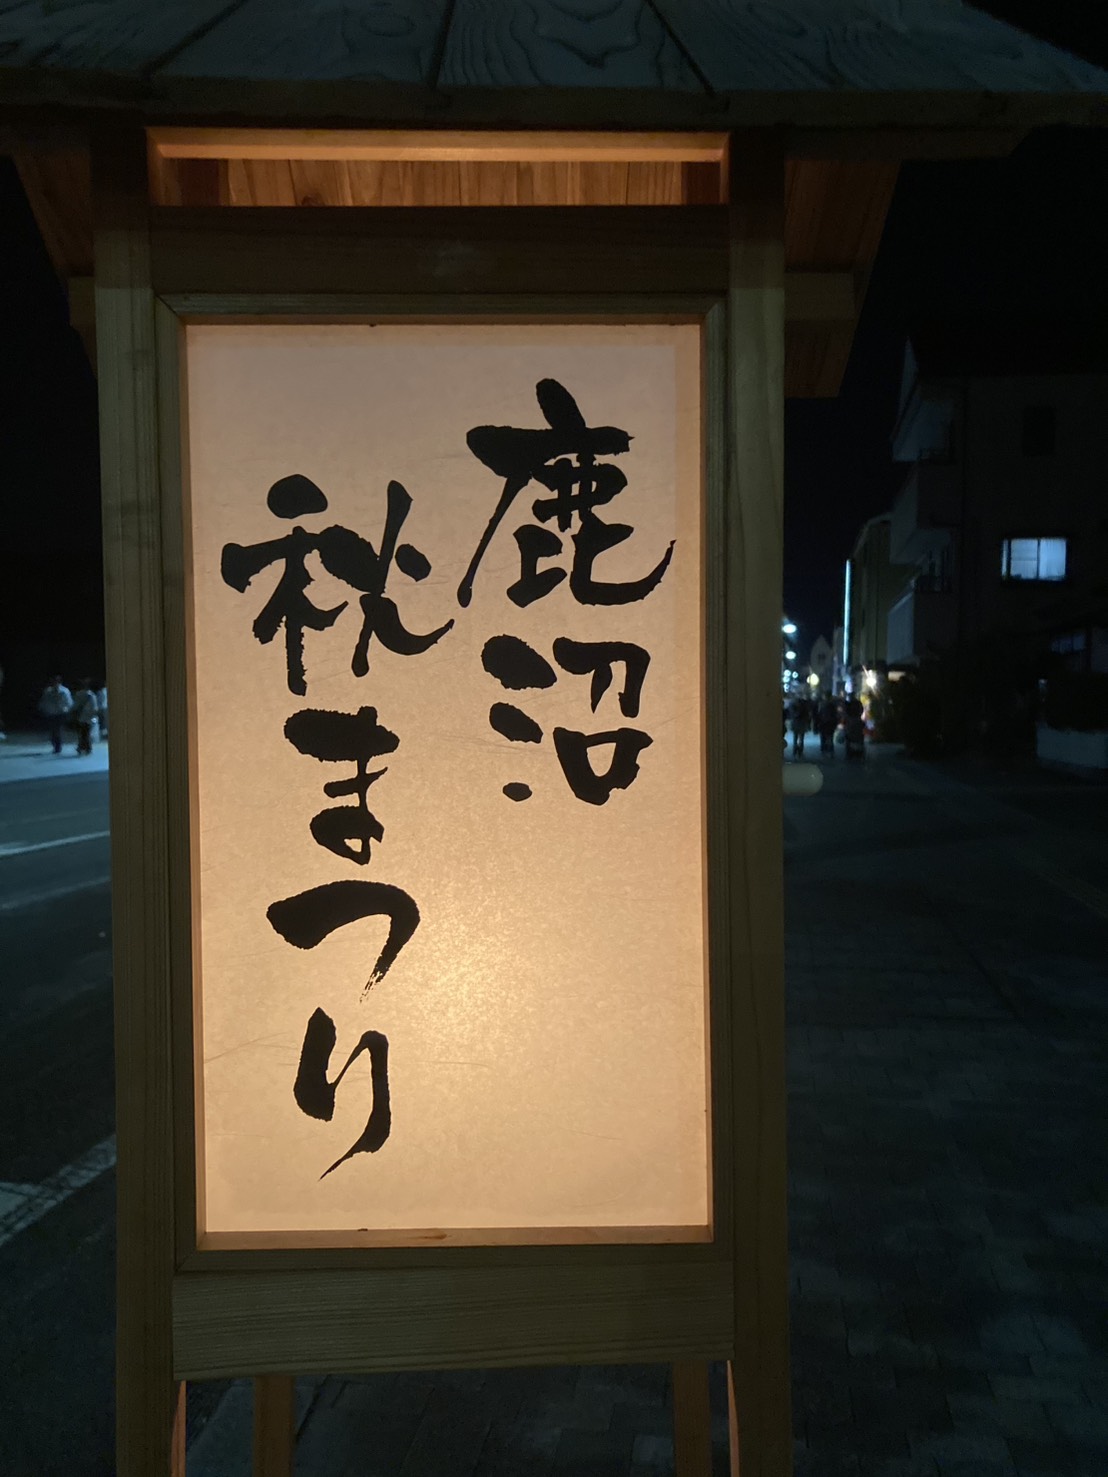 鹿沼
秋まつり